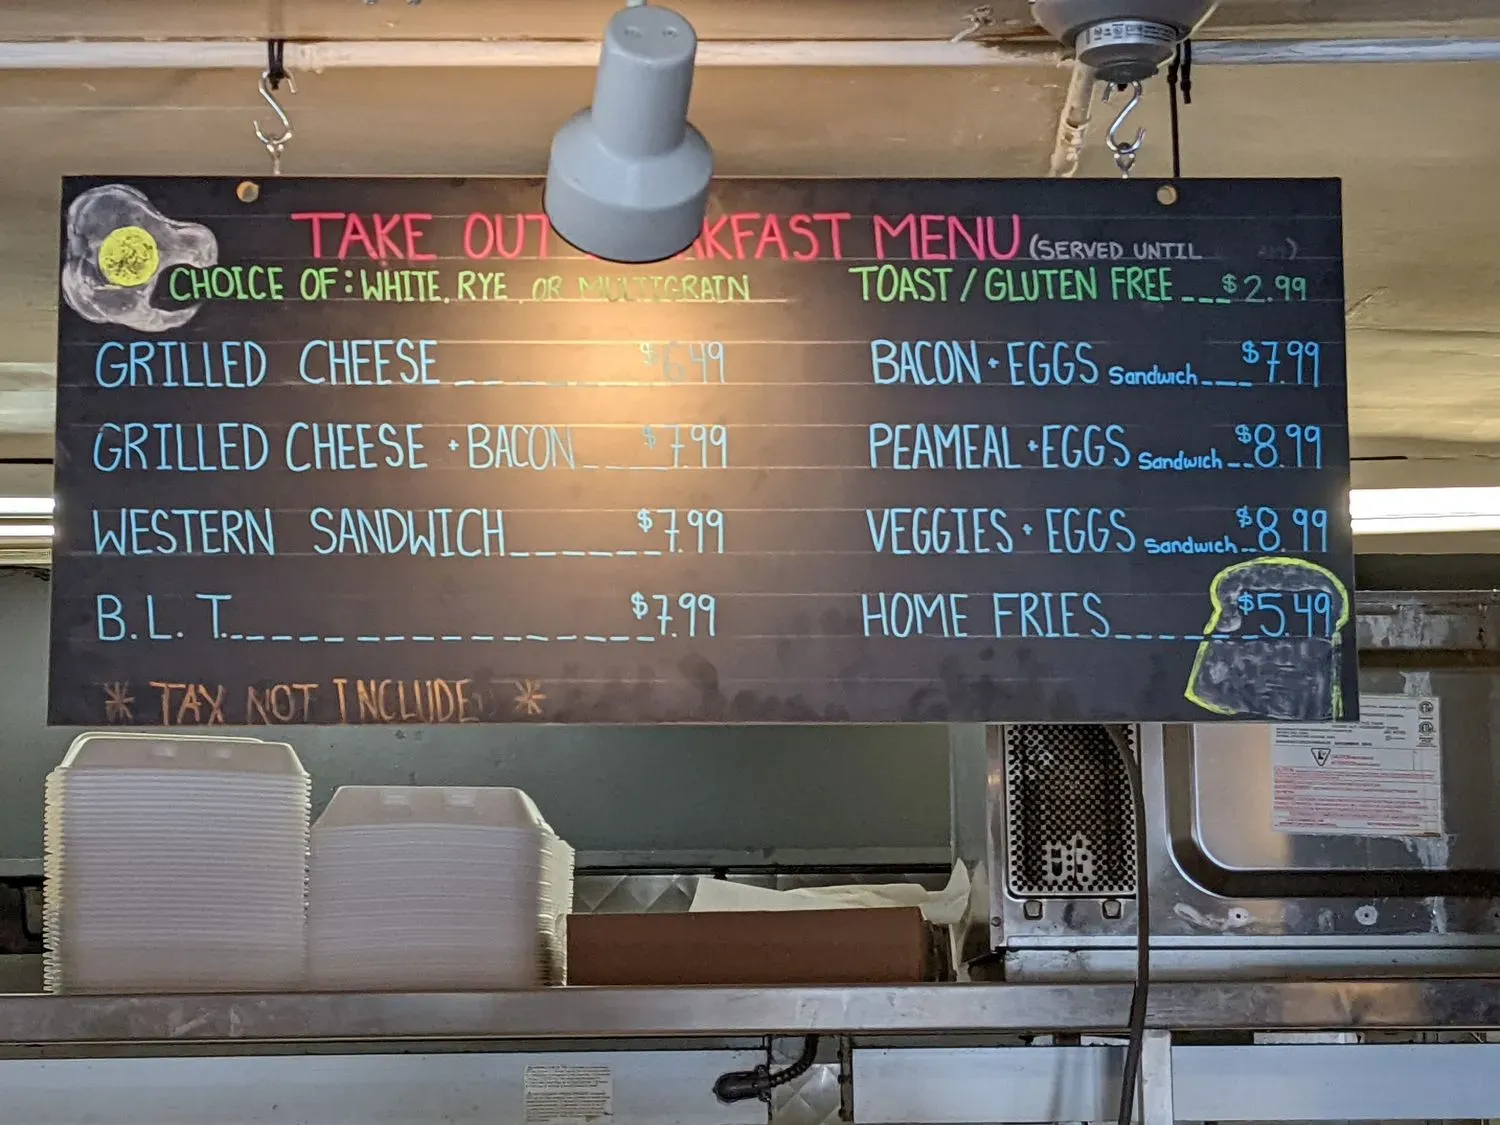 TAKE OUT KFAST MENU (SERVED UNTIL )
CHOICE OF: WHITE, RYE, OR MULTIGRAIN
TOAST / GLUTEN FREE ___ $2.99
GRILLED CHEESE ______ $6.49
GRILLED CHEESE + BACON ____ $7.99
WESTERN SANDWICH ______ $7.99
B.L.T. _______________ $7.99
BACON + EGGS Sandwich ___ $7.99
PEAMEAL + EGGS Sandwich __ $8.99
VEGGIES + EGGS Sandwich __ $8.99
HOME FRIES ______ $5.49
* TAX NOT INCLUDE *